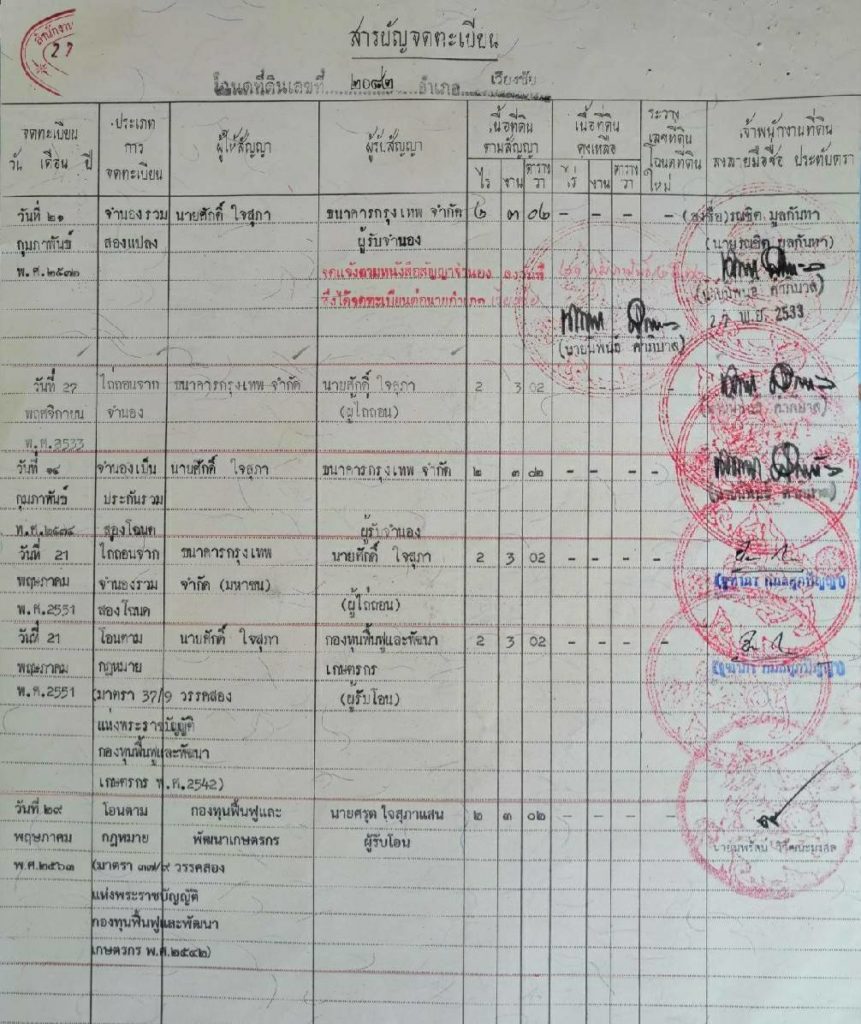 สำนักงาน
27
สารบัญจดทะเบียน
โฉนดที่ดินเลขที่ ๒๐๘๒ อำเภอ เวียงชัย
จดทะเบียน
วัน เดือน ปี
ประเภท
การ
จดทะเบียน
ผู้ให้สัญญา
ผู้รับสัญญา
เนื้อที่ดิน
ตามสัญญา
ไร่ งาน ตาราง
วา
เนื้อที่ดิน
คงเหลือ
ไร่ งาน ตาราง
วา
ระวาง
เลขที่ดิน
โฉนดที่ดิน
ใหม่
เจ้าพนักงานที่ดิน
ลงลายมือชื่อ ประทับตรา
วันที่ ๒๑ จำนองรวม นายศักดิ์ ใจสุภา ธนาคารกรุงเทพ จำกัด ๒ ๓ ๐๒ - - - - (ลงชื่อ)
กุมภาพันธ์ สองแปลง ผู้รับจำนอง
พ.ศ. จดแจ้งตามหนังสือสัญญาจำนอง
ซึ่งได้จดทะเบียนต่อนายอำเภอ
(นายนิพนธ์ คำภิบาล)
27 พ.ย. 2533
(นายนิพนธ์ คำภิบาล)
วันที่ 27 ไถ่ถอนจาก ธนาคารกรุงเทพ จำกัด นายศักดิ์ ใจสุภา 2 3 02 - - - -
พฤศจิกายน จำนอง (ผู้ไถ่ถอน)
พ.ศ.2533
วันที่ ๑๘ จำนองเป็น นายศักดิ์ ใจสุภา ธนาคารกรุงเทพ จำกัด ๒ ๓ - - - -
กุมภาพันธ์ ประกันรวม
พ.ศ. สองโฉนด ผู้รับจำนอง
วันที่ 21 ไถ่ถอนจาก ธนาคารกรุงเทพ นายศักดิ์ ใจสุภา 2 3 02 - - - -
พฤษภาคม จำนองรวม จำกัด (มหาชน)
พ.ศ.2551 สองโฉนด (ผู้ไถ่ถอน)
วันที่ 21 โอนตาม นายศักดิ์ ใจสุภา กองทุนฟื้นฟูและพัฒนา 2 3 02 - - - -
พฤษภาคม กฎหมาย เกษตรกร
พ.ศ.2551 (มาตรา 37/9 วรรคสอง (ผู้รับโอน)
แห่งพระราชบัญญัติ
กองทุนฟื้นฟูและพัฒนา
เกษตรกร พ.ศ.2542)
วันที่ ๒๙ โอนตาม กองทุนฟื้นฟูและ นายศรุต ใจสุภาแสน ๒ ๓ ๐๒ - - - -
พฤษภาคม กฎหมาย พัฒนาเกษตรกร ผู้รับโอน
พ.ศ.๒๕๖๓ (มาตรา ๓๗/๙ วรรคสอง
แห่งพระราชบัญญัติ
กองทุนฟื้นฟูและพัฒนา
เกษตรกร พ.ศ.๒๕๔๒)